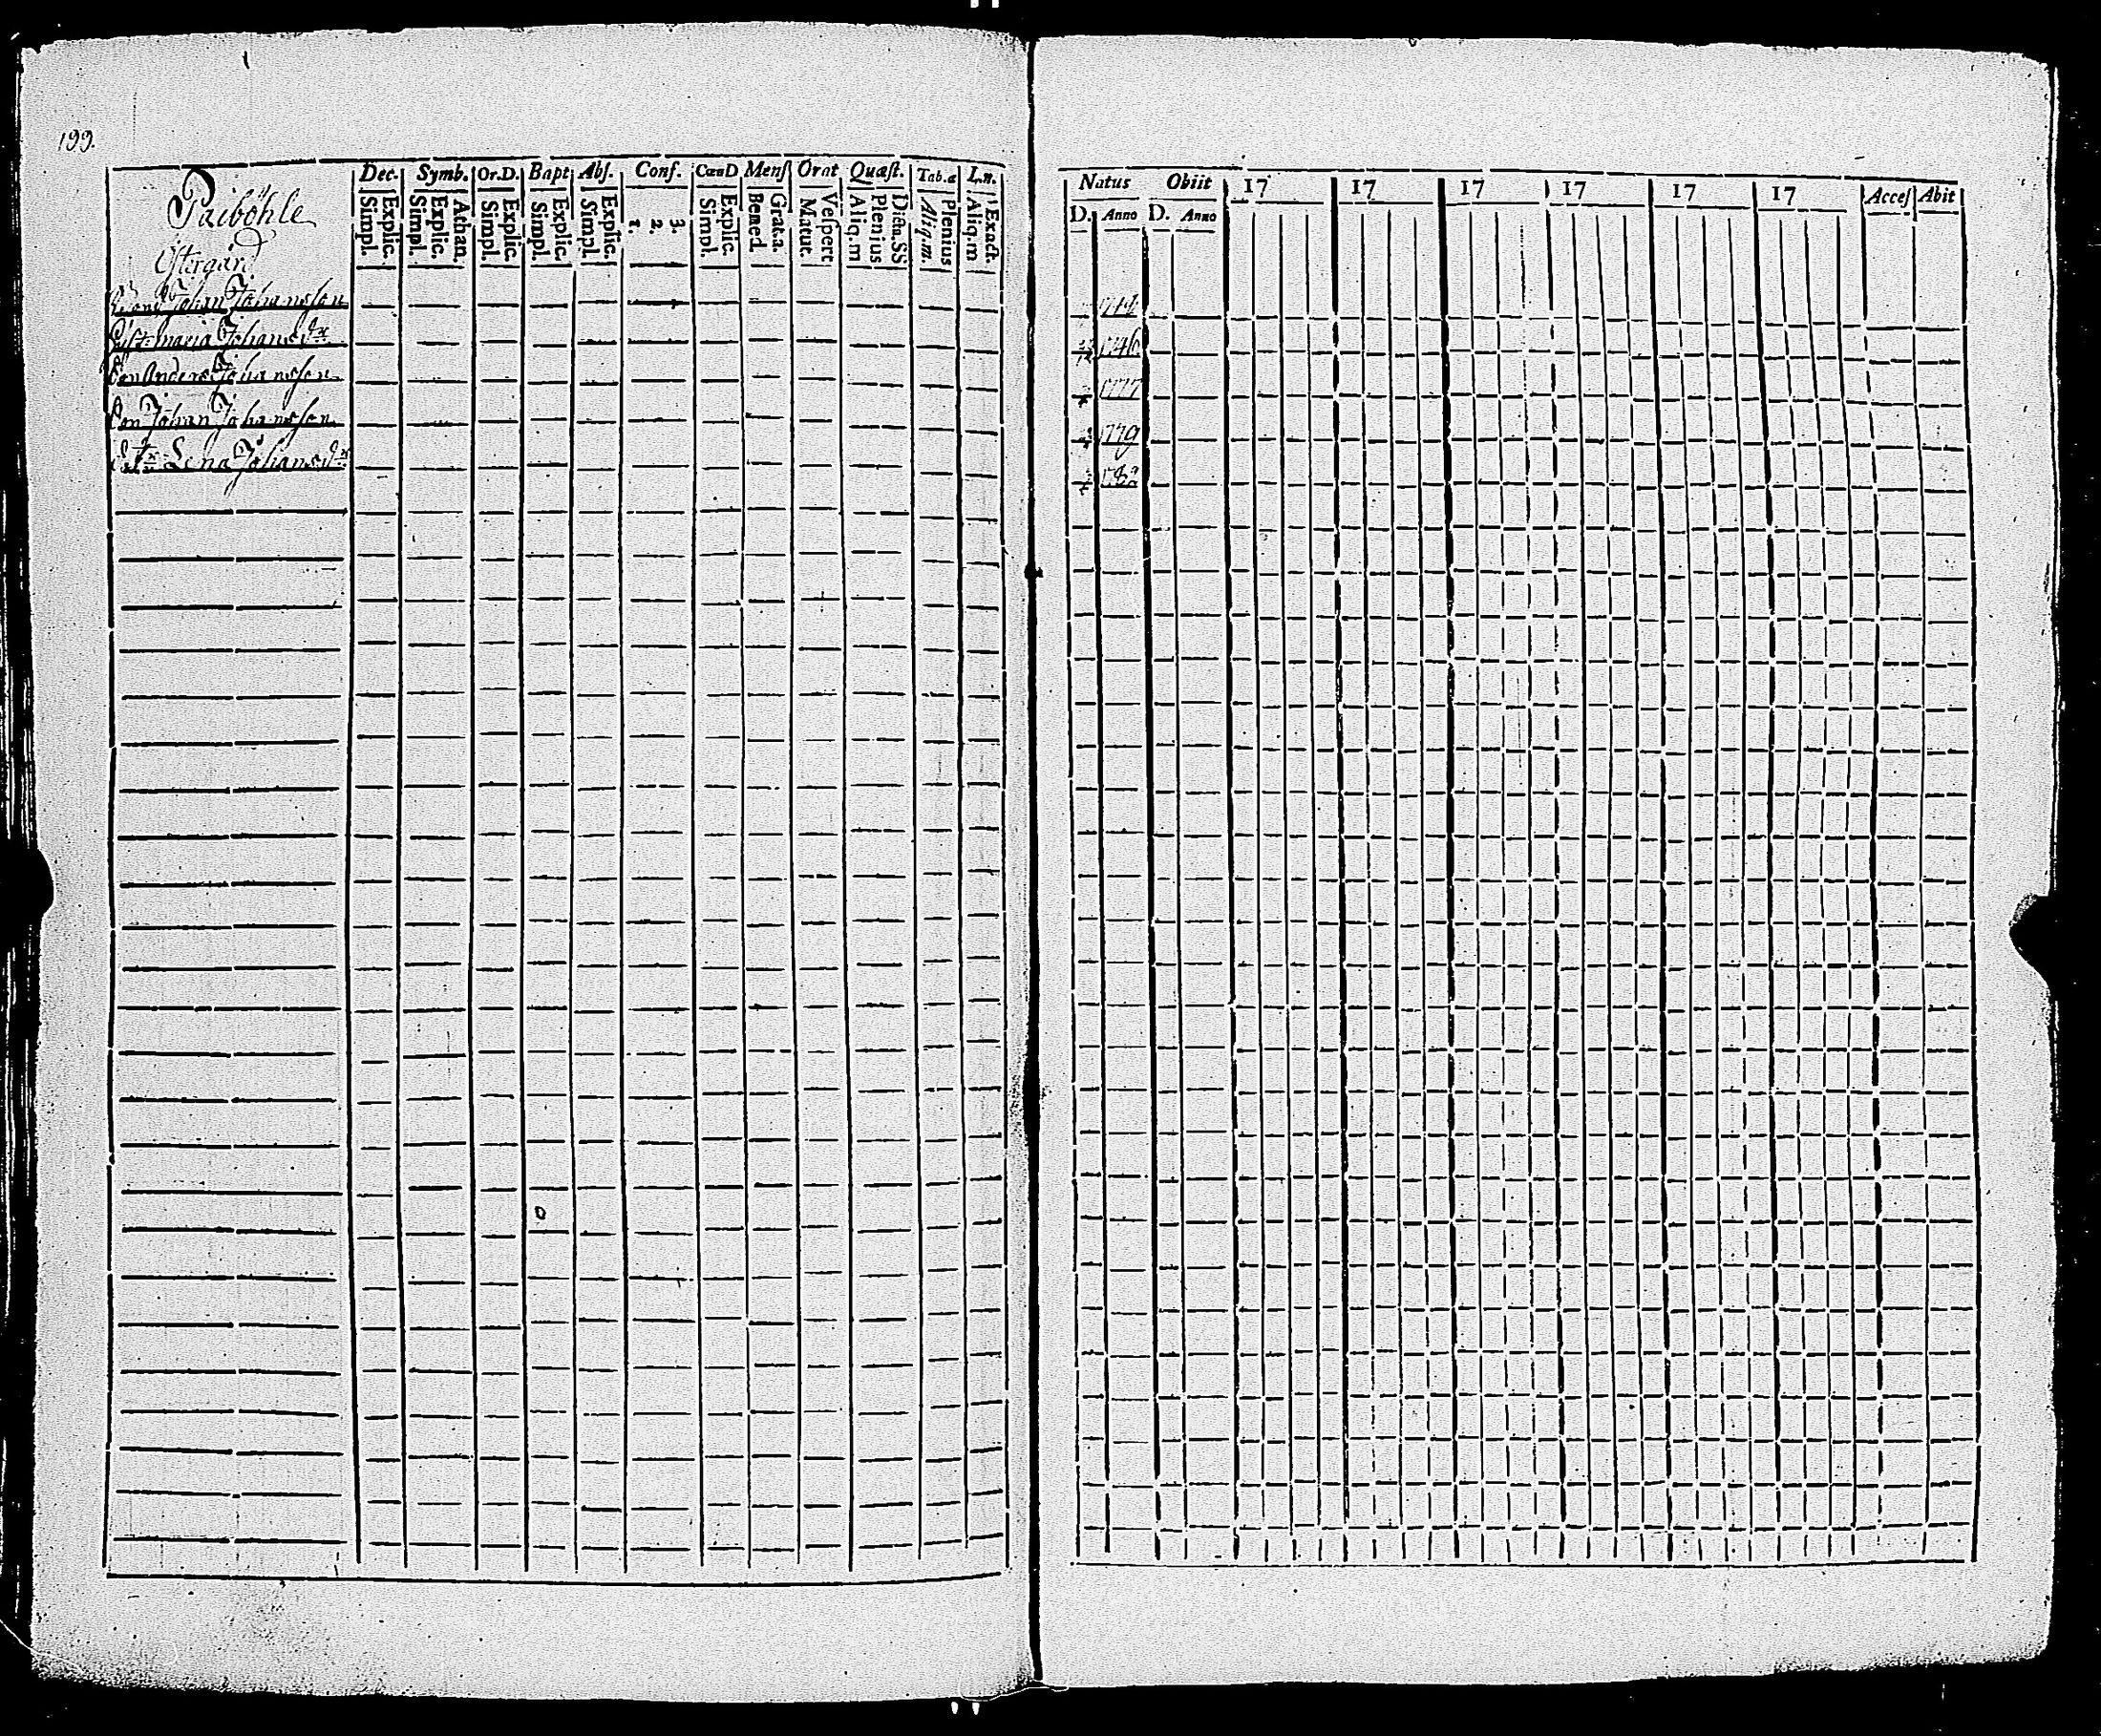 199.
Paiböhle
Östergård
Dec. Symb. Or.D. Bapt Abs. Conf. CœnD Menſ Orat Quæſt. Tab.æ L.n.
Simpl. Explic. Simpl. Explic. Athan. Simpl. Explic. Simpl. Explic. Simpl. Explic. 1. 2. 3. Simpl. Explic. Bened. Grat.a. Matut. Veſpert Aliq.m Plenius Dicta.SS Aliq.m. Plenius Aliq.m Exact.
Natus Obiit 17 17 17 17 17 17 Acceſ Abit
D. Anno D. Anno
Johan Johansson
Maria Johansdr 1746
Son Anders Johansson 1777
Son Johan Johansson 1779
Lena Johansdr 1782